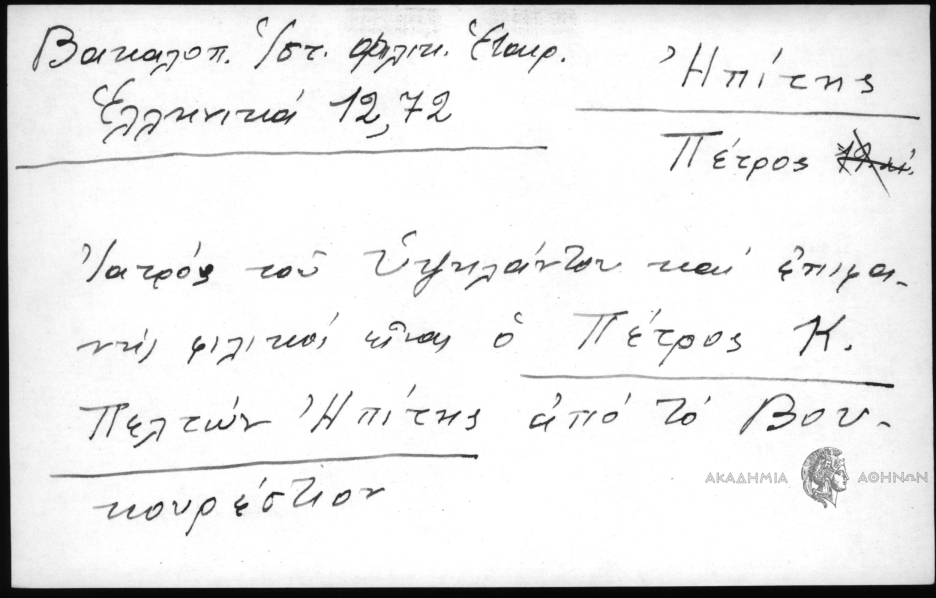 Βακαλοπ. Ἱστ. Φιλικ. Ἑταιρ.
Ἑλληνικά 12,72
Ἠπίτης
Πέτρος
Ἰατρός τοῦ Ὑψηλάντου καί ἐπιφα-
νής φιλικός εἶναι ὁ Πέτρος Κ.
Πελτών Ἠπίτης ἀπό τό Βου-
κουρέστιον
ΑΚΑΔΗΜΙΑ ΑΘΗΝΩΝ